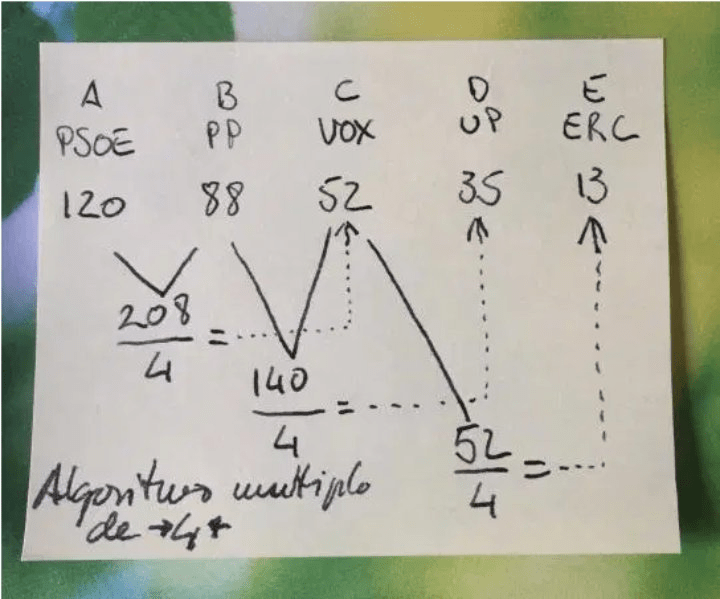 A B C D E
PSOE PP VOX UP ERC
120 88 52 35 13
208
4 =
140
4 =
52
4 =
Algoritmo multiplo
de →4*